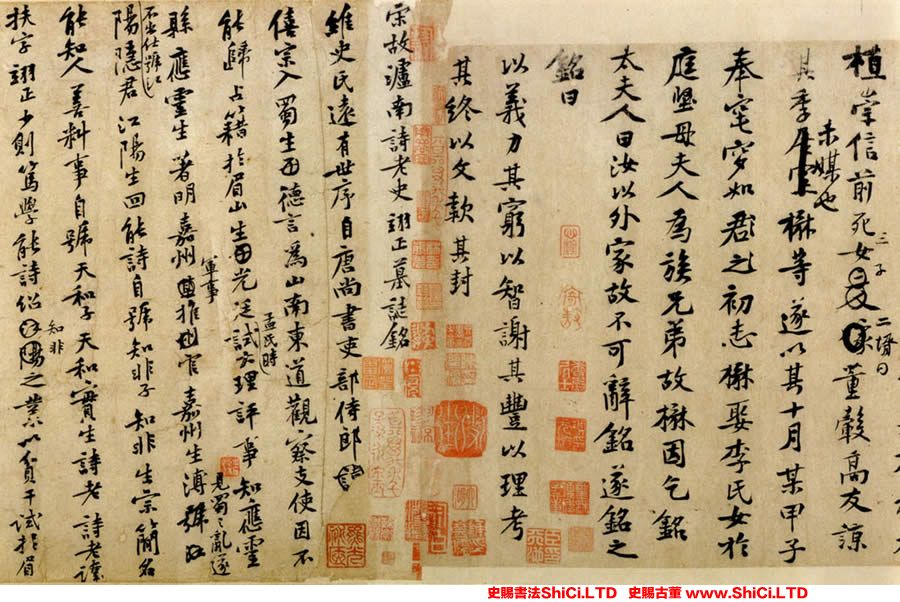 植崇信前死女三子二壻曰董毅高友諒
未媒也
其季楙等遂以其十月某甲子
奉窀穸如君之初志楙娶李氏女於
庭堅母夫人為族兄弟故楙因乞銘
太夫人曰汝以外家故不可辭銘遂銘之
銘曰
以義力其窮以智謝其豐以理考
其終以文款其封
宋故瀘南詩老史翊正墓誌銘
維史氏遠有世序自唐尚書吏部侍郎
僖宗入蜀生德言為山南東道觀察支使因不
見蜀之亂遂
能歸占籍於眉山生光泛試大理評事知應靈
孟氏時
縣應靈生著明嘉州軍事推官嘉州生溥號江
不出仕號江
陽隱君江陽生回能詩自號知非子知非生宗簡名
能知人善料事自號天和子天和實生詩老詩老諱
扶字翊正少則篤學能詩紹知非之業以貢干試於眉
史賜書法ShiCi.LTD 史賜古董 www.ShiCi.LTD